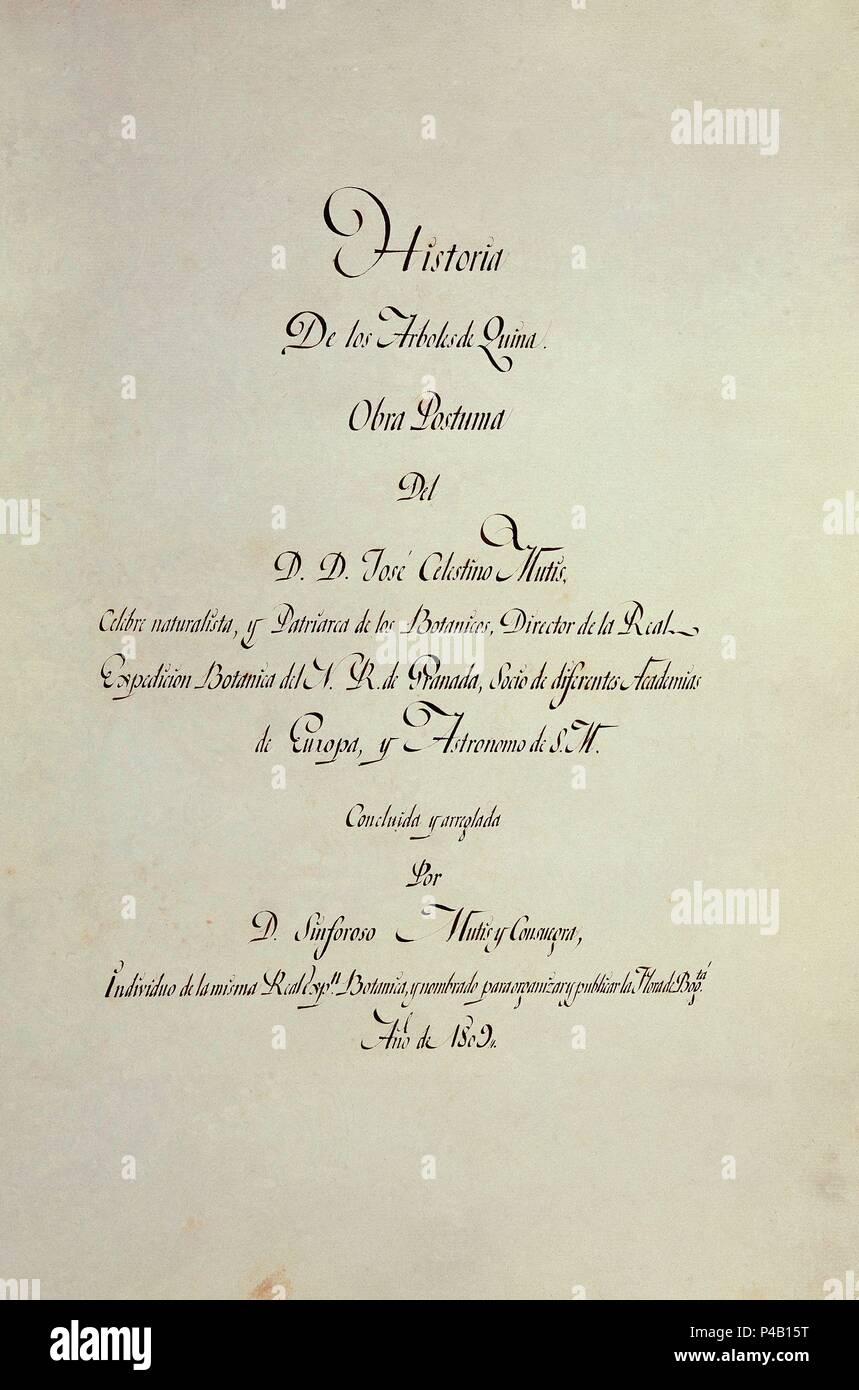 Historia
De los Arboles de Quina.
Obra Postuma
Del
D. D. José Celestino Mutis,
Celibre naturalista, y Patriarca de los Botanicos, Director de la Real
Expedicion Botanica del N. R. de Granada, Socio de diferentes Academias
de Europa, y Astronomo de S. M.
Concluida y arreglada
Por
D. Sinforoso Mutis y Consuegra,
Individuo de la misma Real Expn. Botanica, y nombrado para organizar y publicar la Flora de Bogtá.
de 1809.
alamy
a
alamy stock photo
P4B15T
www.alamy.com